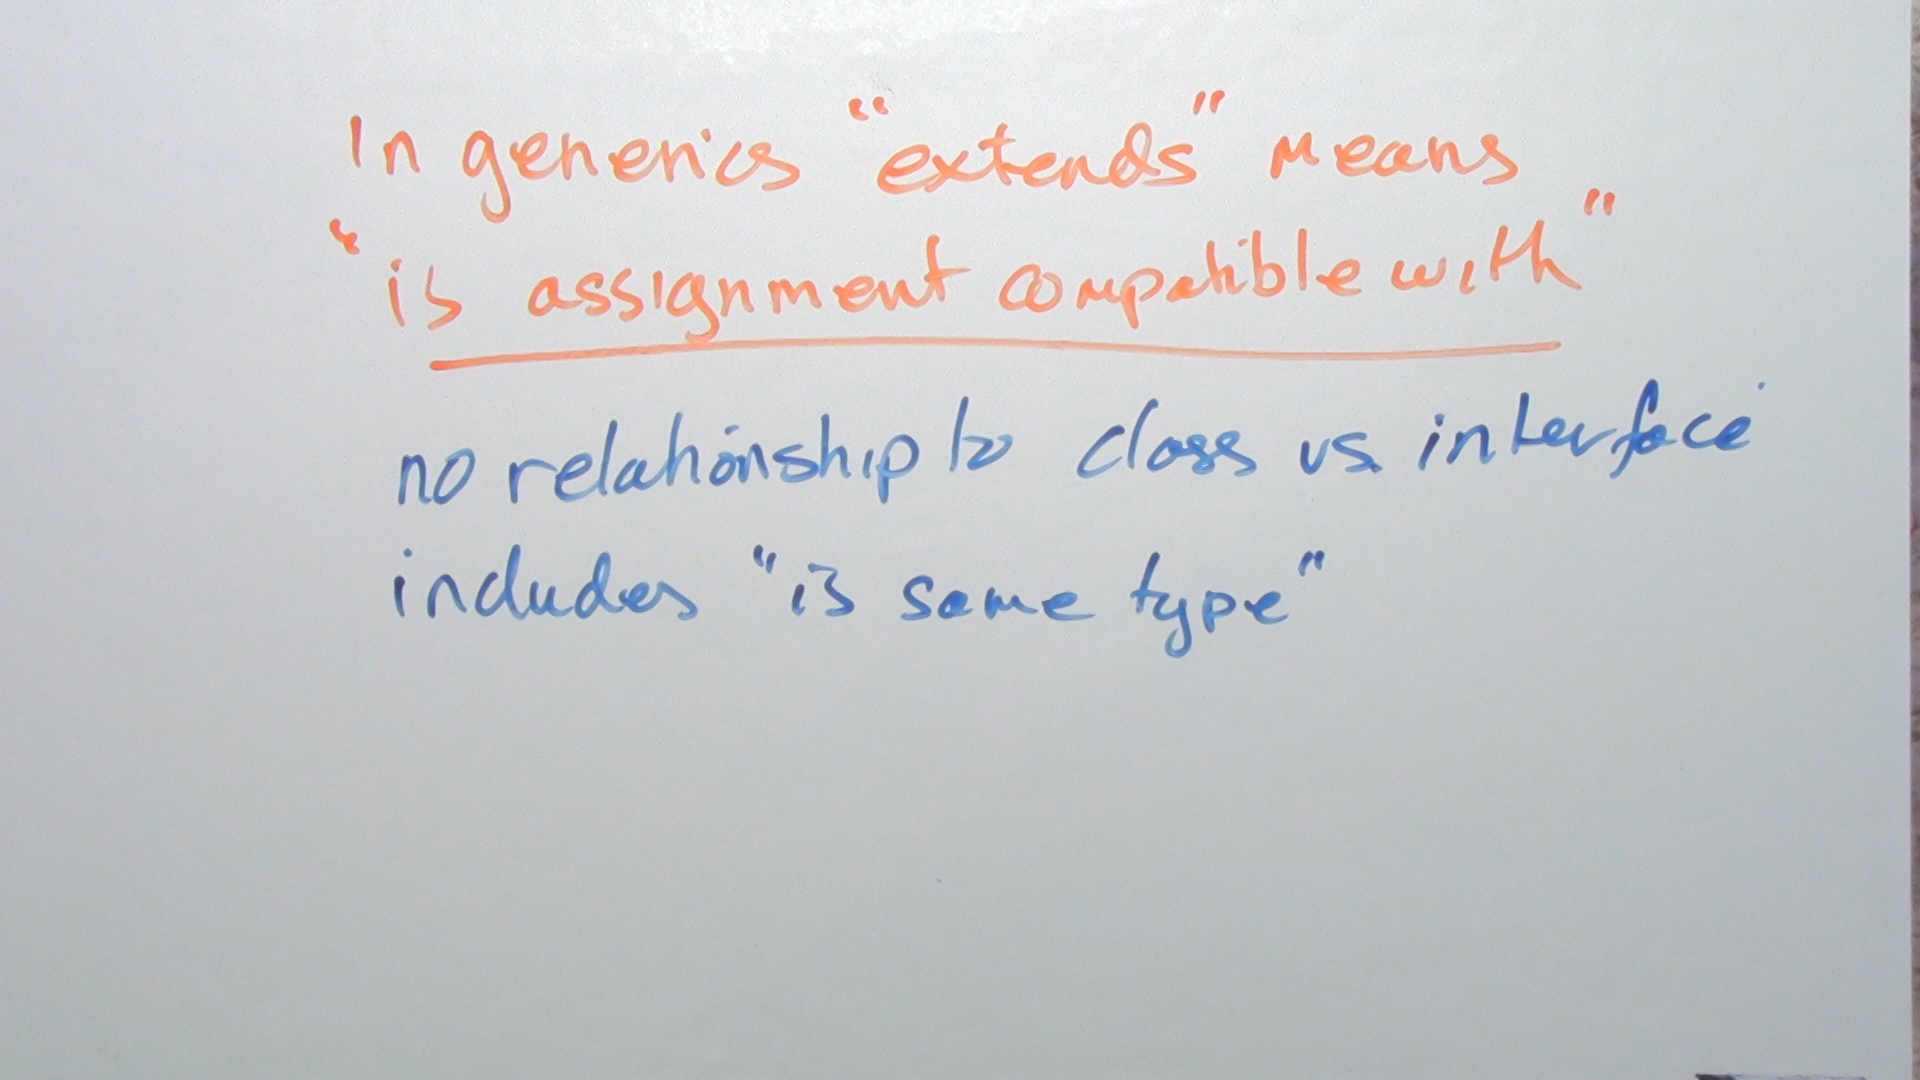 In generics "extends" means
"is assignment compatible with"
no relationship to class vs. interface
includes "is same type"